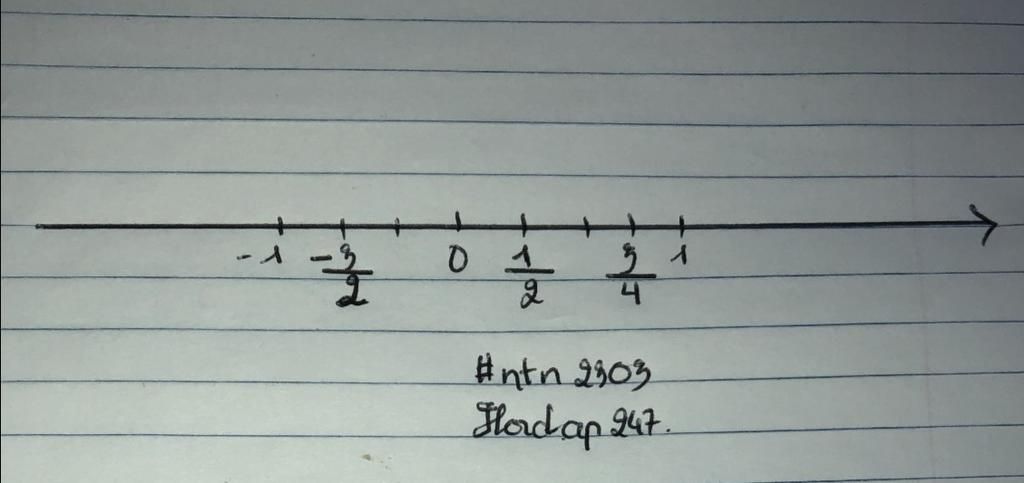 -1 -3/2 0 1/2 3/4 1
#ntn 2303
Hoidap 247.